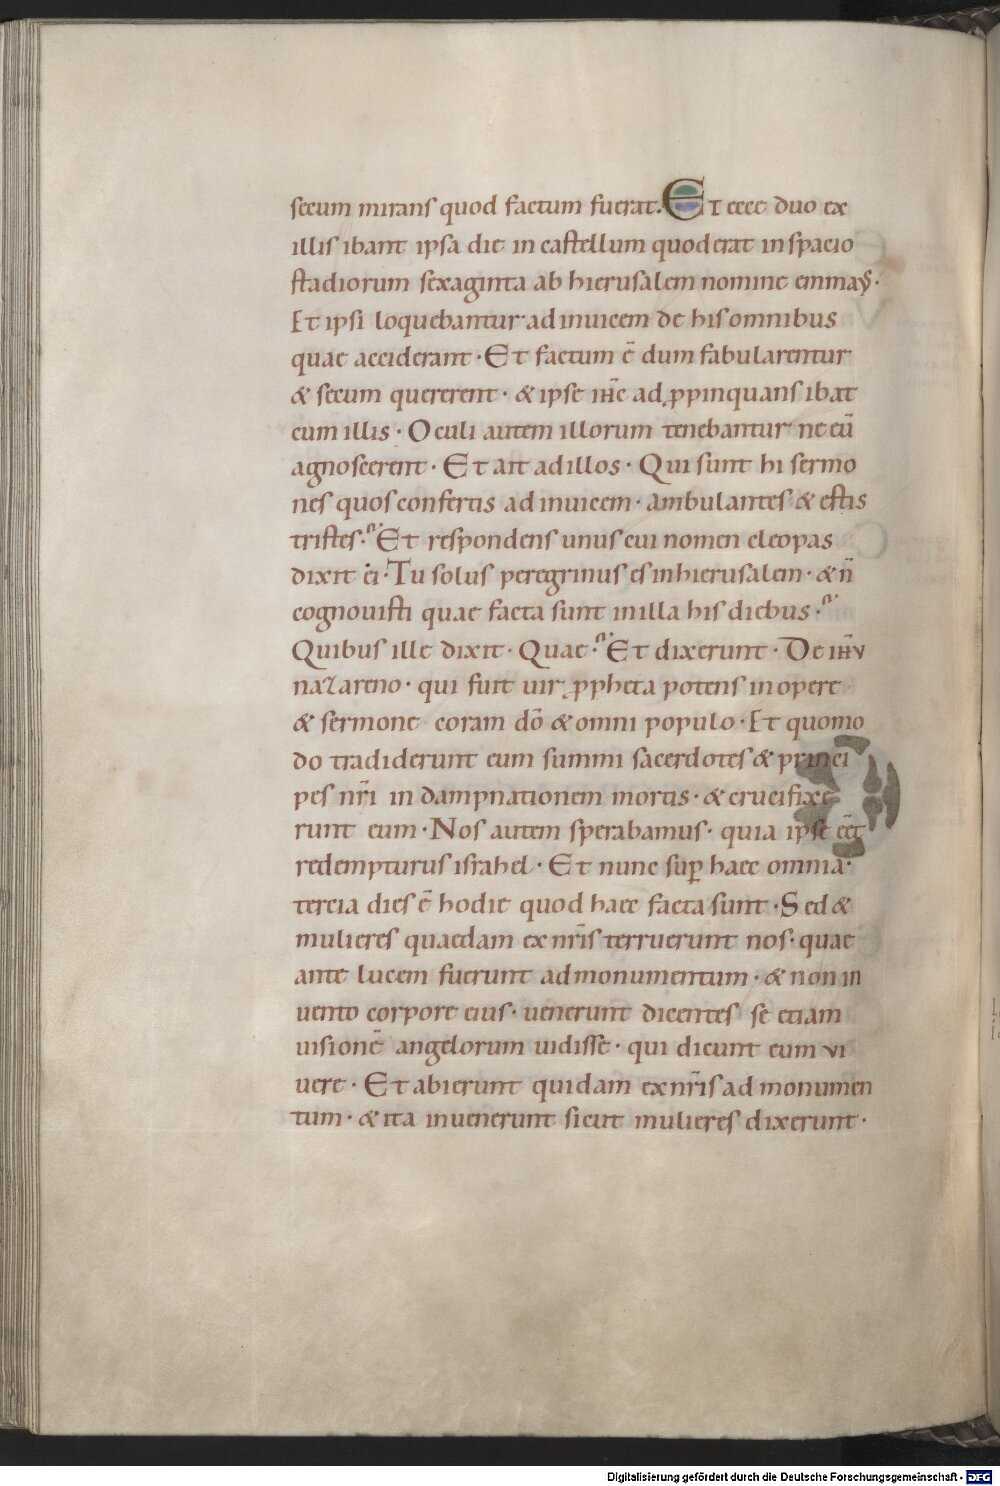 secum mirans quod factum fuerat. Et ecce duo ex
illis ibant ipsa die in castellum quod erat in spacio
stadiorum sexaginta ab hierusalem nomine emmaꝰ·
Et ipsi loquebantur ad inuicem de his omnibus
quae acciderant· Et factum ē dum fabularentur
& secum quererent· & ipse ihc̄ ad ꝓpinquans ibat
cum illis· Oculi autem illorum tenebantur ne eū
agnoscerent· Et ait ad illos· Qui sunt hi sermo
nes quos confertis ad inuicem· ambulantes & estis
tristes· Et respondens unus cui nomen cleopas
dixit ei· Tu solus peregrinus es in hierusalem· & n̄
cognouisti quae facta sunt in illa his diebus·
Quibus ille dixit· Quae· Et dixerunt· De ih̄u
nazareno· qui fuit uir ꝓpheta potens in opere
& sermone coram dō & omni populo· Et quomo
do tradiderunt eum summi sacerdotes & princi
pes nr̄i in dampnationem mortis· & crucifixe
runt eum· Nos autem sperabamus· quia ipse eēt
redempturus israhel· Et nunc sup̄ haec omnia·
tercia dies ē hodie quod haec facta sunt· Sed &
mulieres quaedam ex nr̄is terruerunt nos· quae
ante lucem fuerunt ad monumentum· & non in
uento corpore eius· uenerunt dicentes se etiam
uisionē angelorum uidisse· qui dicunt eum vi
uere· Et abierunt quidam ex nr̄is ad monumen
tum· & ita inuenerunt sicut mulieres dixerunt·
Digitalisierung gefördert durch die Deutsche Forschungsgemeinschaft - DFG